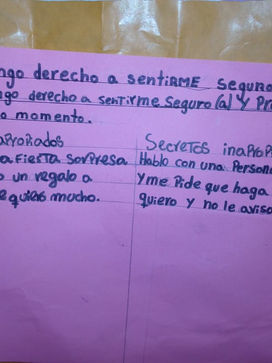 ngo derecho a sentiRME seguro
ngo derecho a senTirme seguro(a) y Pro
o momento.
aProPiados
a Fiesta sorPresa
o un regalo a
e quiero mucho.
SecreTos inaProPi
Hablo con una Persona
y me Pide que haga
quiero y no le avisa